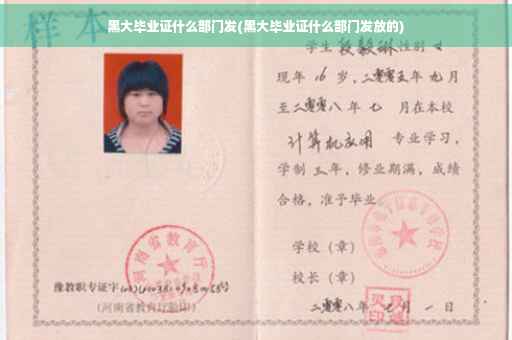 黑大毕业证什么部门发(黑大毕业证什么部门发放的)
样本
河南省教育厅
豫教职专证字
(河南省教育厅验印)
学生 段毅琳 性别 女
现年 16 岁，二零零五年 九 月
至二零零八年 七 月在本校
计算机应用 专业学习，
学制 三 年，修业期满，成绩
合格，准予毕业。
学校（章）
校长（章）
二零零八年 七 月 一 日